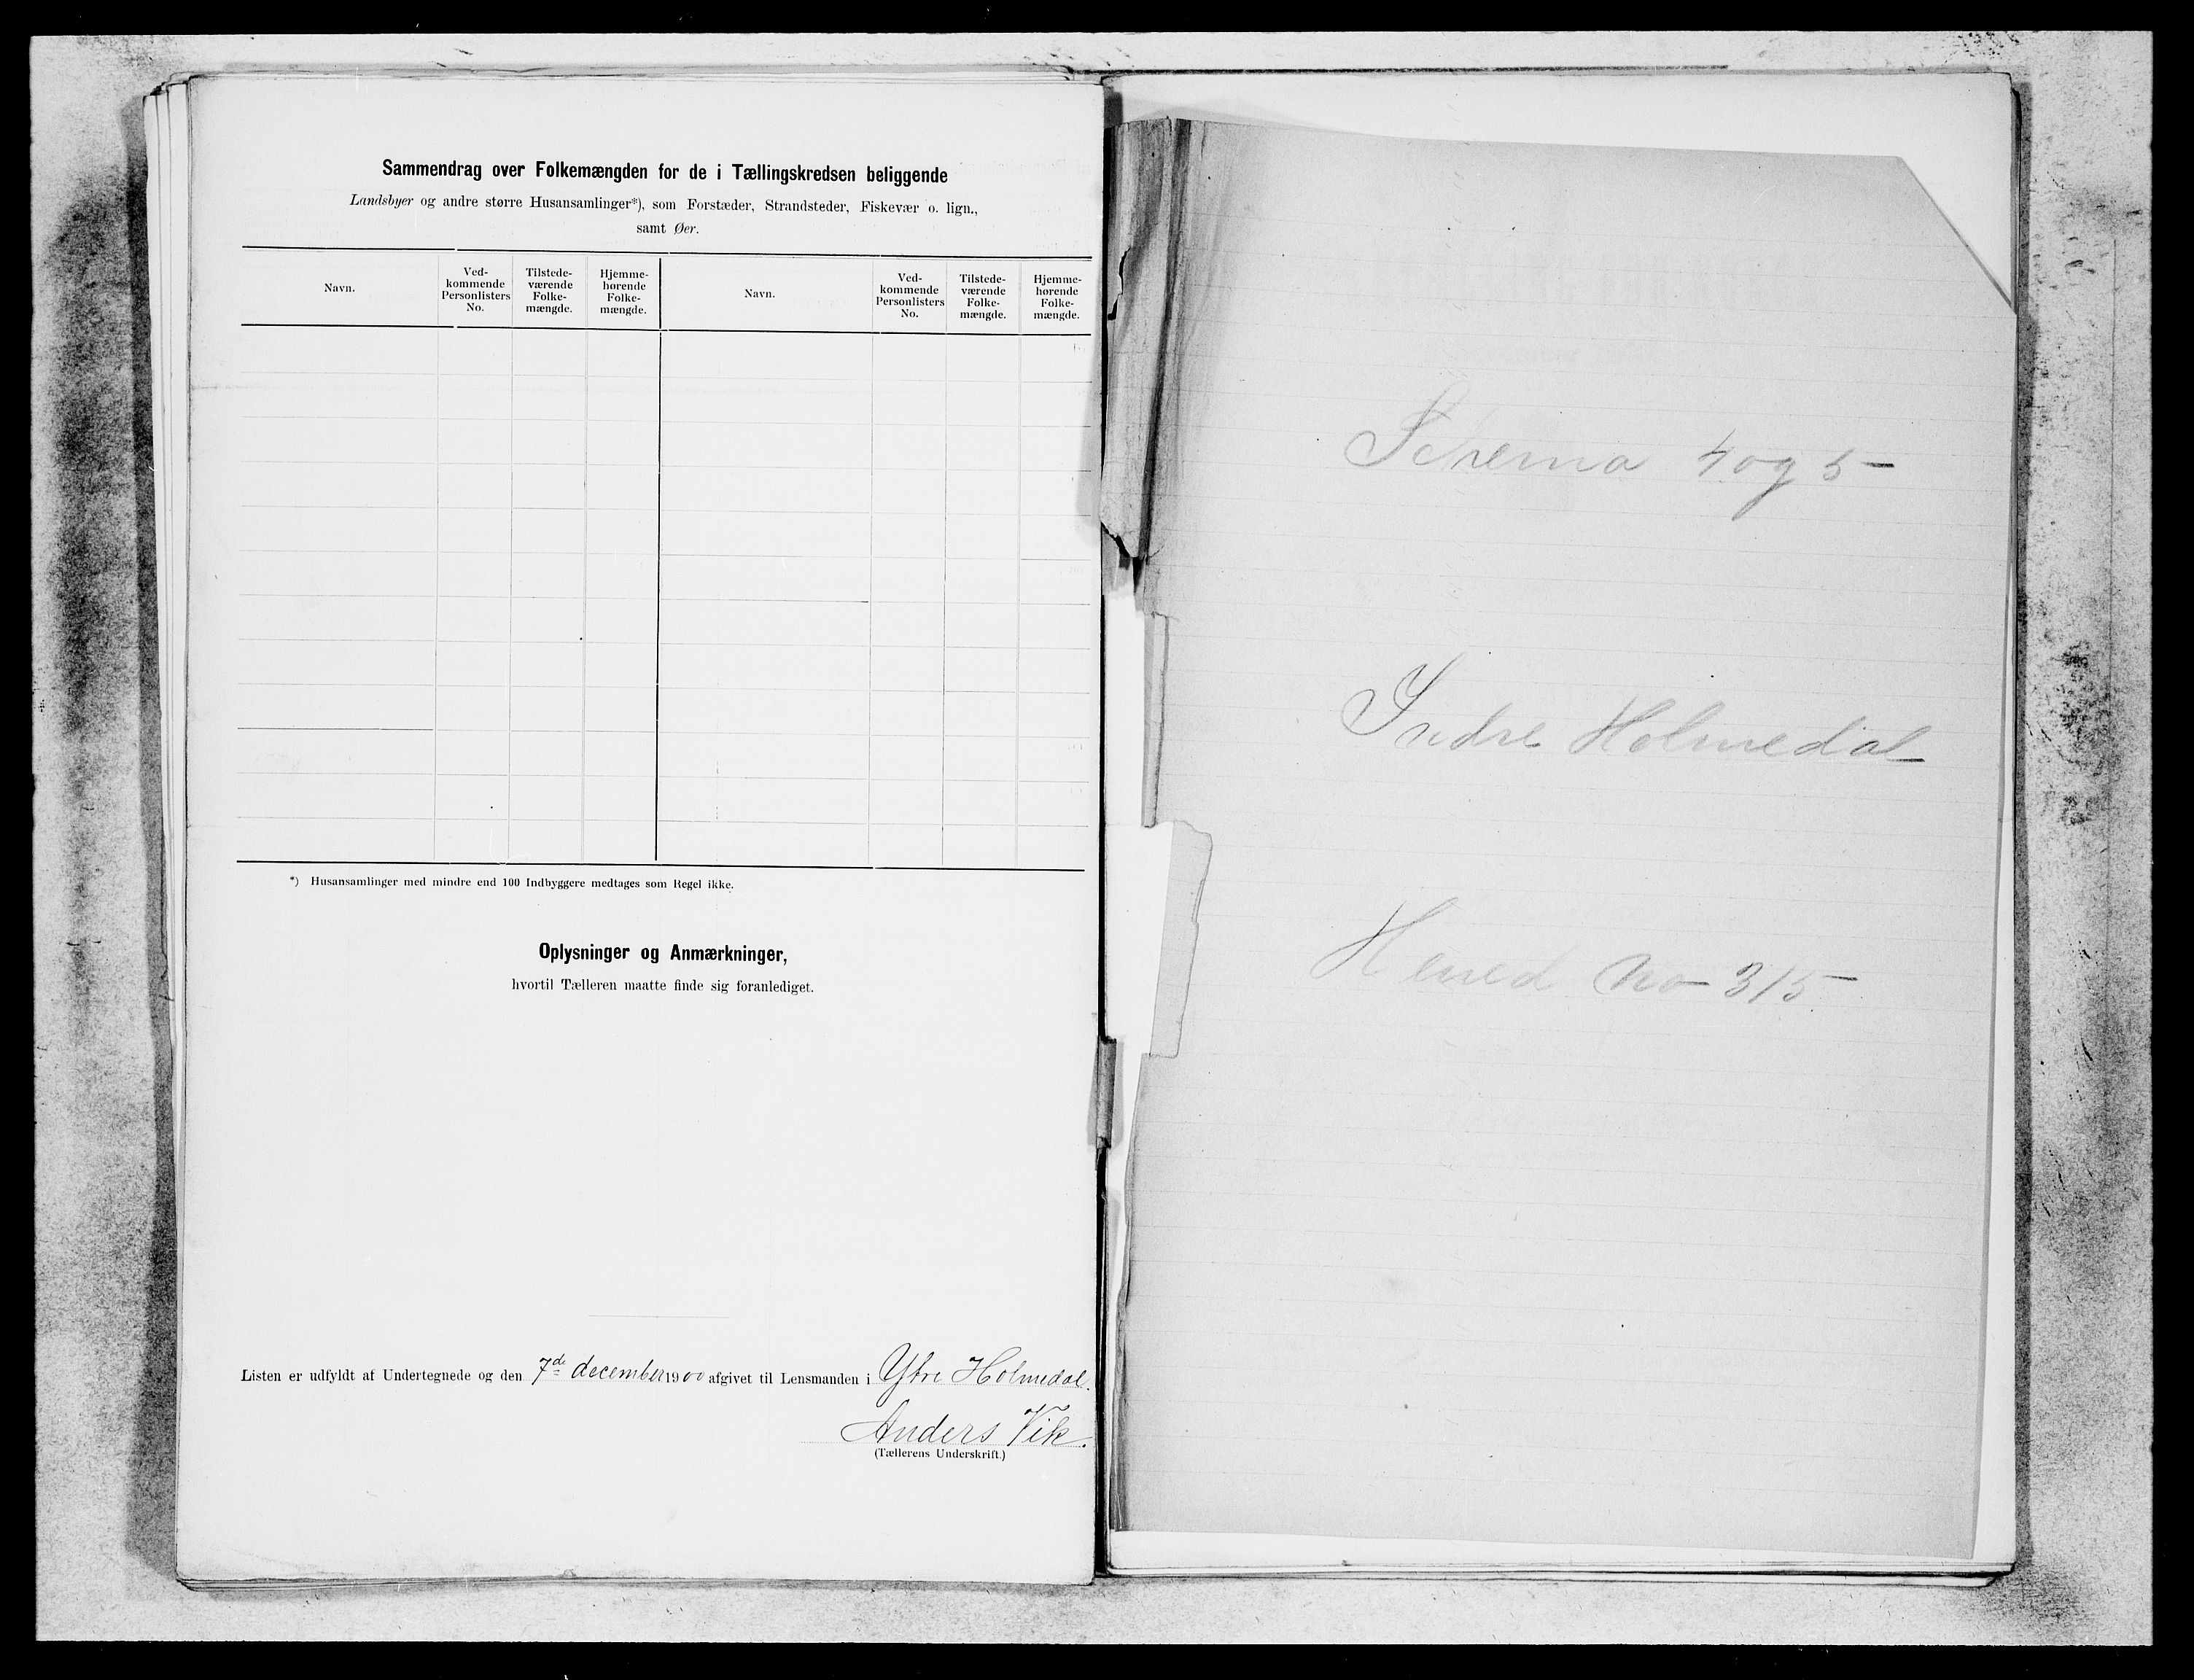 Sammendrag over Folkemængden for de i Tællingskredsen beliggende
Landsbyer og andre større Husansamlinger*), som Forstæder, Strandsteder, Fiskevær o. lign.,
samt Øer.
Navn.
Ved-
kommende
Personlisters
No.
Tilstede-
værende
Folke-
mængde.
Hjemme-
hørende
Folke-
mængde.
Navn.
Ved-
kommende
Personlisters
No.
Tilstede-
værende
Folke-
mængde.
Hjemme-
hørende
Folke-
mængde.
*) Husansamlinger med mindre end 100 Indbyggere medtages som Regel ikke.
Oplysninger og Anmærkninger,
hvortil Tælleren maatte finde sig foranlediget.
Listen er udfyldt af Undertegnede og den 7de december 1900 afgivet til Lensmanden i Ytre Holmedal.
Anders Vik.
(Tællerens Underskrift.)
Schema 4 og 5
Indre Holmedal
Herred No 315